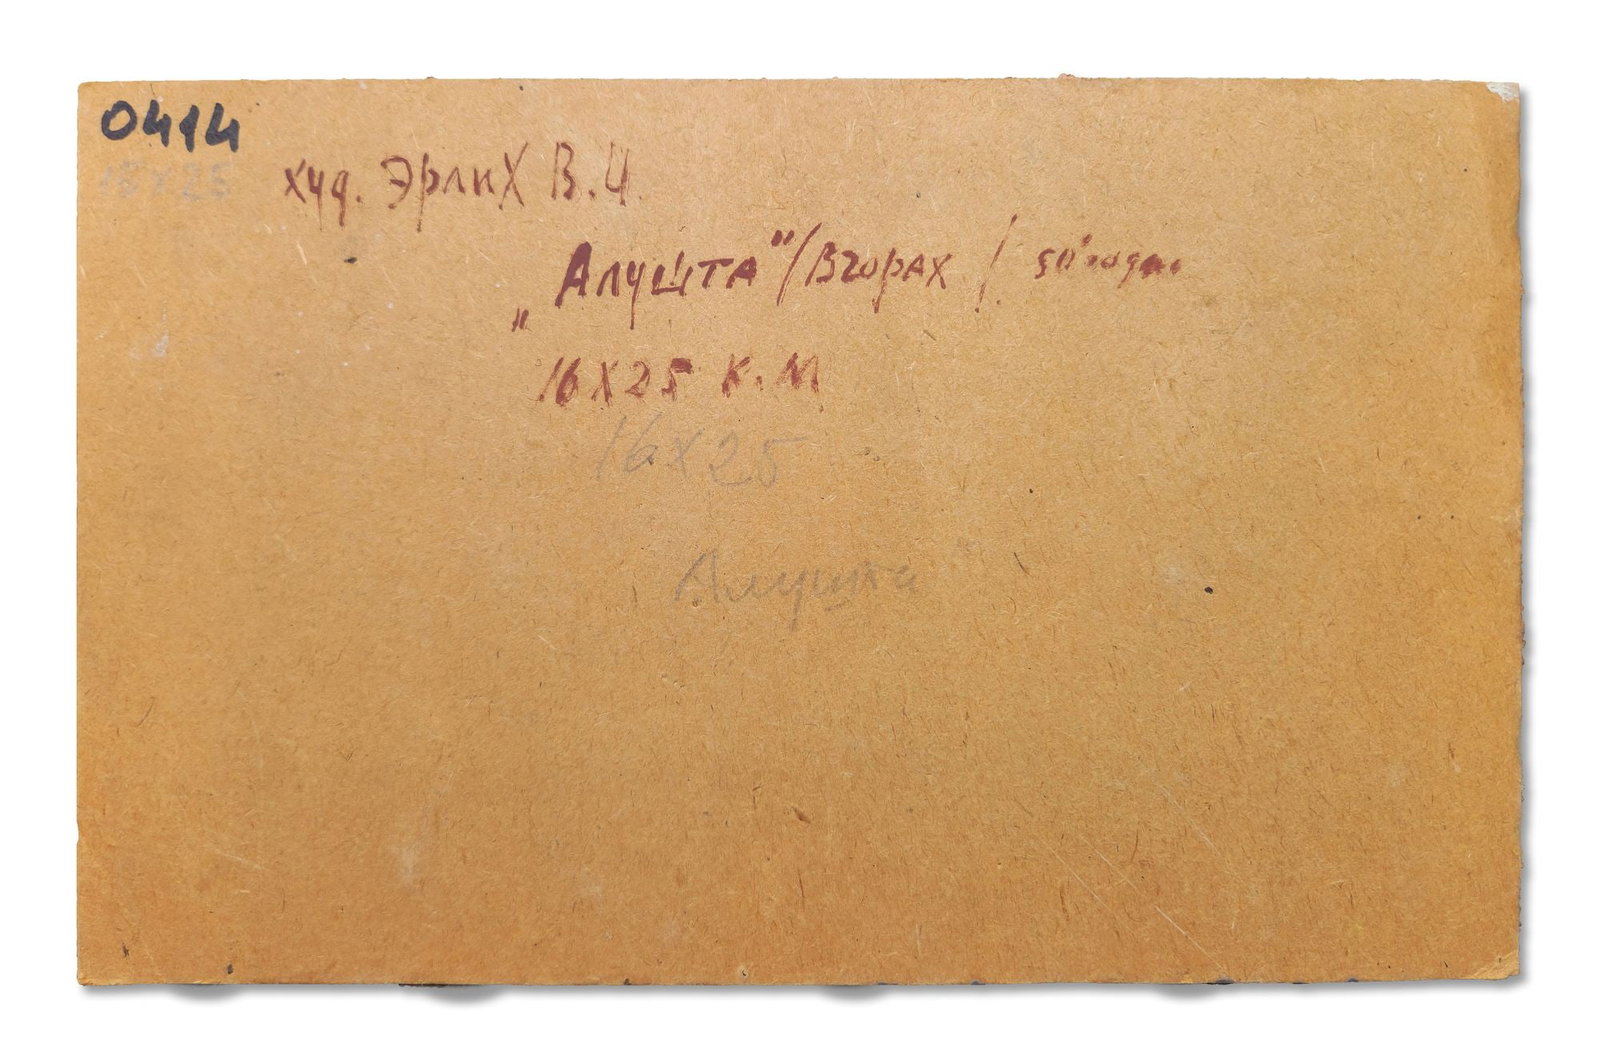 0414
15X25
худ. Эрлих В.И.
„Алушта"/Вгорах/ 50 годы
16X25 К.М
16x25
Алушта